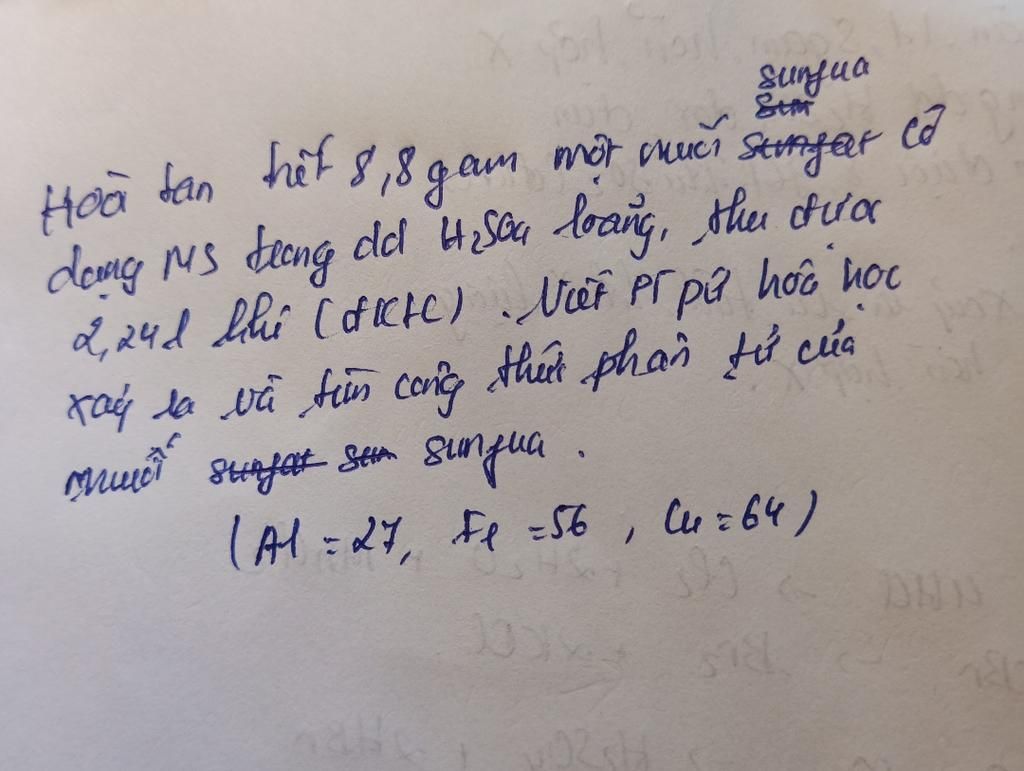 sunfua
Hoà tan hết 8,8 gam một muối sunfat có
dạng MS trong dd H₂SO₄ loãng, thu được
2,24l khí (đktc). Viết PT pứ hoá học
xảy ra và tìm công thức phân tử của
muối sunfat sunfua.
(Al = 27, Fe = 56, Cu = 64)